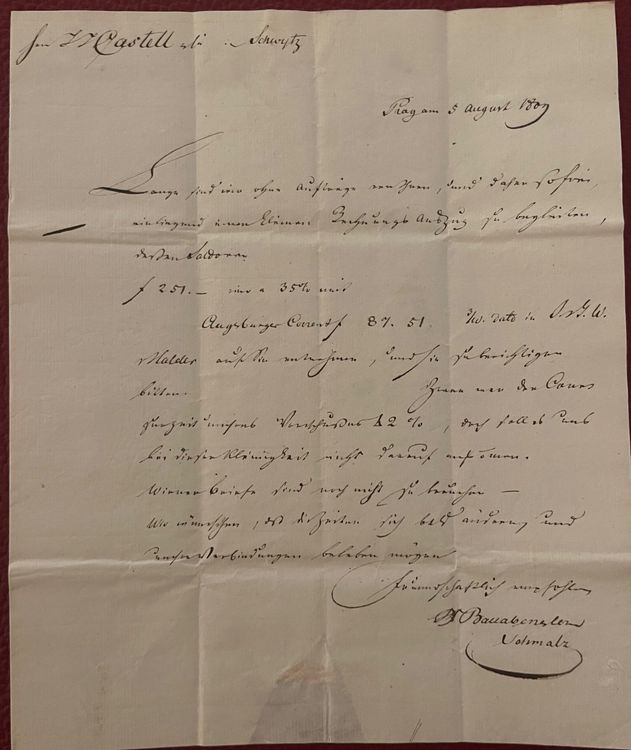 Castell Schwytz
Prag am 5 August 1809
Lange sind wir ohne Aufträge von Ihnen, und daher so frei,
einliegend einen kleinen Rechnungs Auszug zu begleiten,
dessen Saldo von
f 251.— wir a 35% mit
Augsburger Corrent f 87. 51. dato in
auf Sie entnehmen, und Sie zu berichtigen
bitten. war der Cours
zur Zeit unseres Vorschusses 42 %, doch soll es uns
bei dieser Kleinigkeit nicht darauf ankommen.
Wiener Briefe sind noch nicht zu brauchen —
Wir wünschen, daß die Zeiten sich bald ändern, und
unsere Verbindungen beleben mögen
Freundschaftlich empfohlen
Schmalz